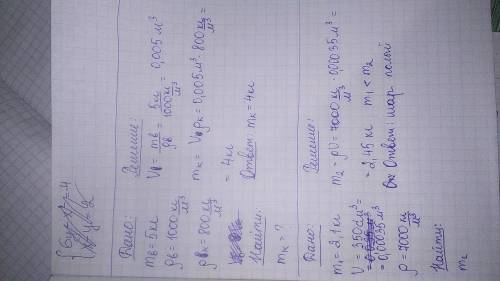 Дано:
m в = 5 кг
ρ в = 1000 кг/м³
ρ к = 800 кг/м³
Найти:
m к = ?
Решение:
V в = m в / ρ в = 5 кг / 1000 кг/м³ = 0,005 м³
m к = V в ρ к = 0,005 м³ · 800 кг/м³ =
= 4 кг
Ответ: m к = 4 кг
Дано:
m₁ = 2,1 кг
V = 350 см³ =
= 0,00035 м³
ρ = 7000 кг/м³
Найти:
m₂
Решение:
m₂ = ρV = 7000 кг/м³ · 0,00035 м³ =
= 2,45 кг m₁ < m₂
Ответ: шар полый